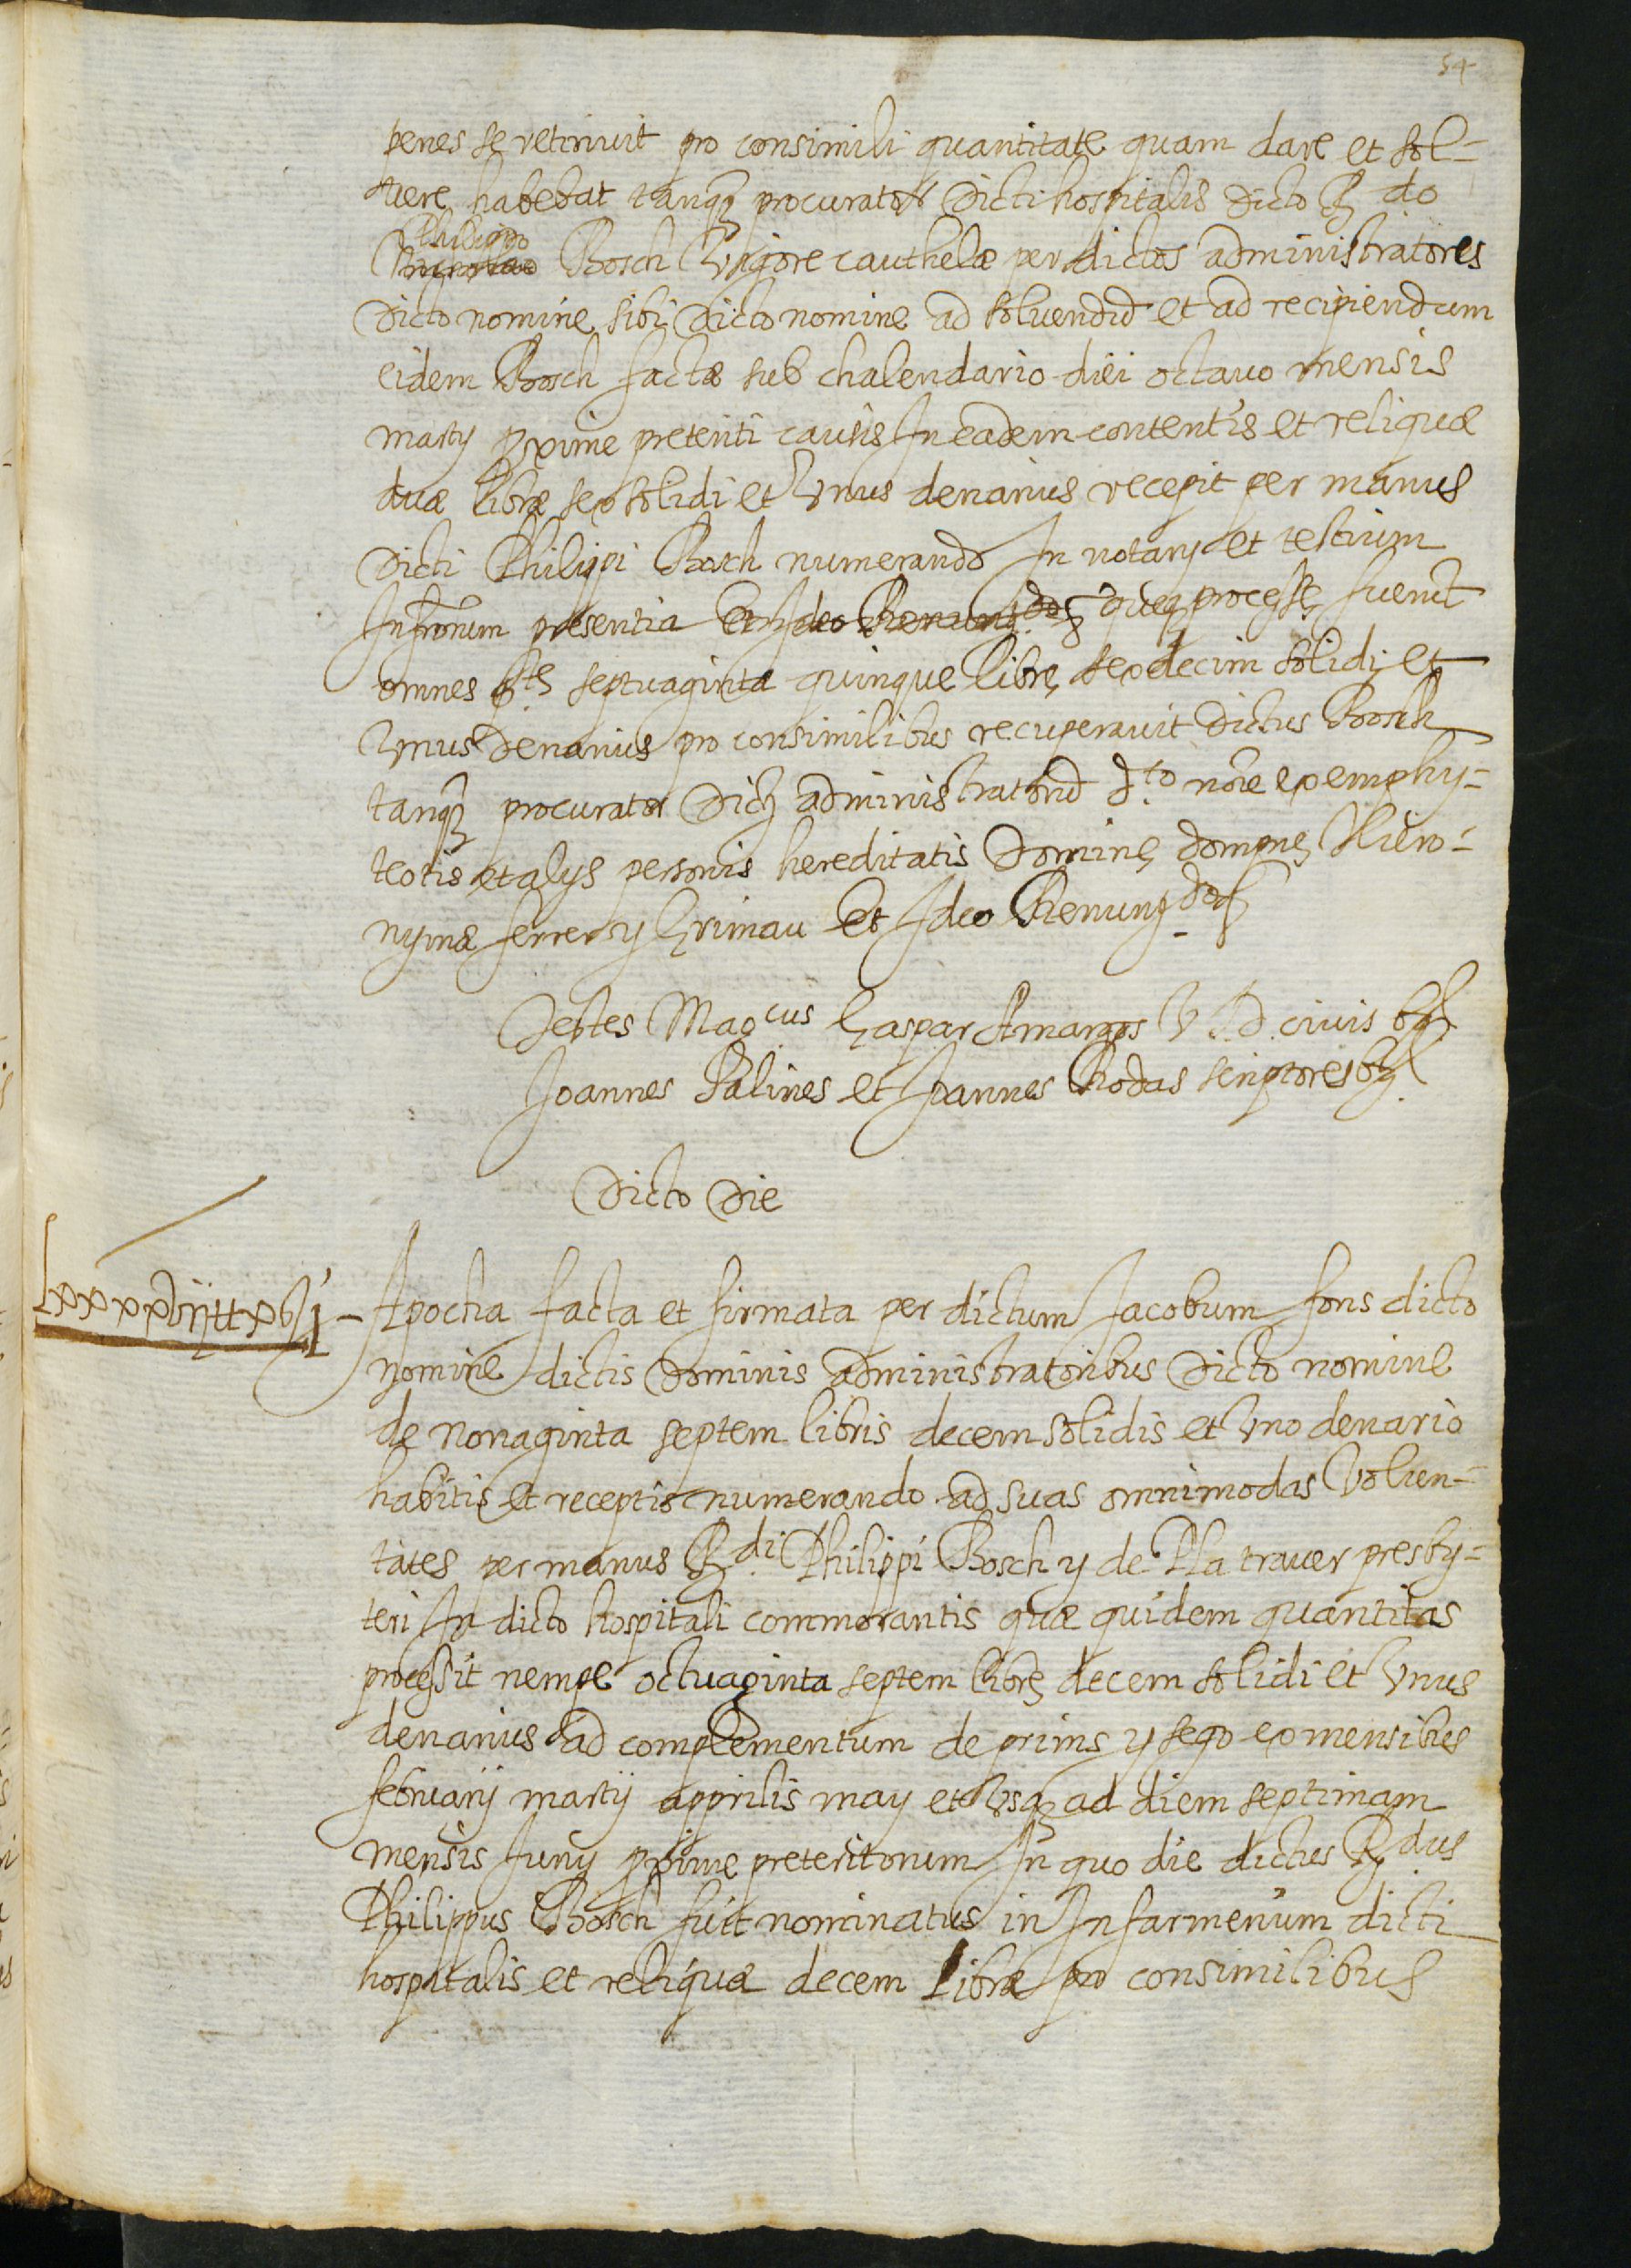 54
penes se retinuit pro consimili quantitate quam dare et sol=
vere habebat tanq̃ procurator dicti hospitalis dicto R.do
Philippo
Bosch Vigore cauthelæ per dictos administratores
dicto nomine sibi dicto nomine ad soluendũ et ad recipiendum
eidem Bosch factæ sub chalendario diei octauo mensis
martij pxime preteriti causis In eadem contentis et reliquæ
duæ libræ sex solidi et Vnus denarius recepit per manus
dicti Philippi Bosch numerando In notarij et testium
Infrõrum presentia Et Ideo Renung. dos queq̃ processę fuerũt
omnes dte septuaginta quinque librę sexdecim solidi et
Vnus denarius pro consimilibus recuperauit dictus Bosch
tanq̃ procurator dictᵣ administratorũ d.to noĩe ex emphy=
teotis et alijs personis hereditatis dominę domnę Hiero=
nymæ ferrer y Grimau Et Ideo Renung dos
Testes Mag.cus Gaspar Amargos V. J. D. ciuis bar
Joannes Salines et Joannes Rodas scriptores bar
Dicto Die
Lxxxxvij ll x ß j - Apocha facta et firmata per dictum Jacobum fons dicto
nomine dictis dominis administratoribus dicto nomine
de nonaginta septem libris decem solidis et Vno denario
habitis et receptis numerando ad suas omnimodas Volun=
tates per manus R.di Philippi Bosch y de Pla trauer presby=
teri In dicto hospitali commorantis quæ quidem quantitas
processit nempe octuaginta septem librę decem solidi et Vnus
denarius ad complementum de prims y sego ex mensibus
februarij martij apprilis may et Vsq̃ ad diem septimam
mensis Junij pxime preteritorum In quo die dictus R.dus
Philippus Bosch fuit nominatus in Infarmerium dicti
hospitalis et reliquæ decem libræ pro consimilibus